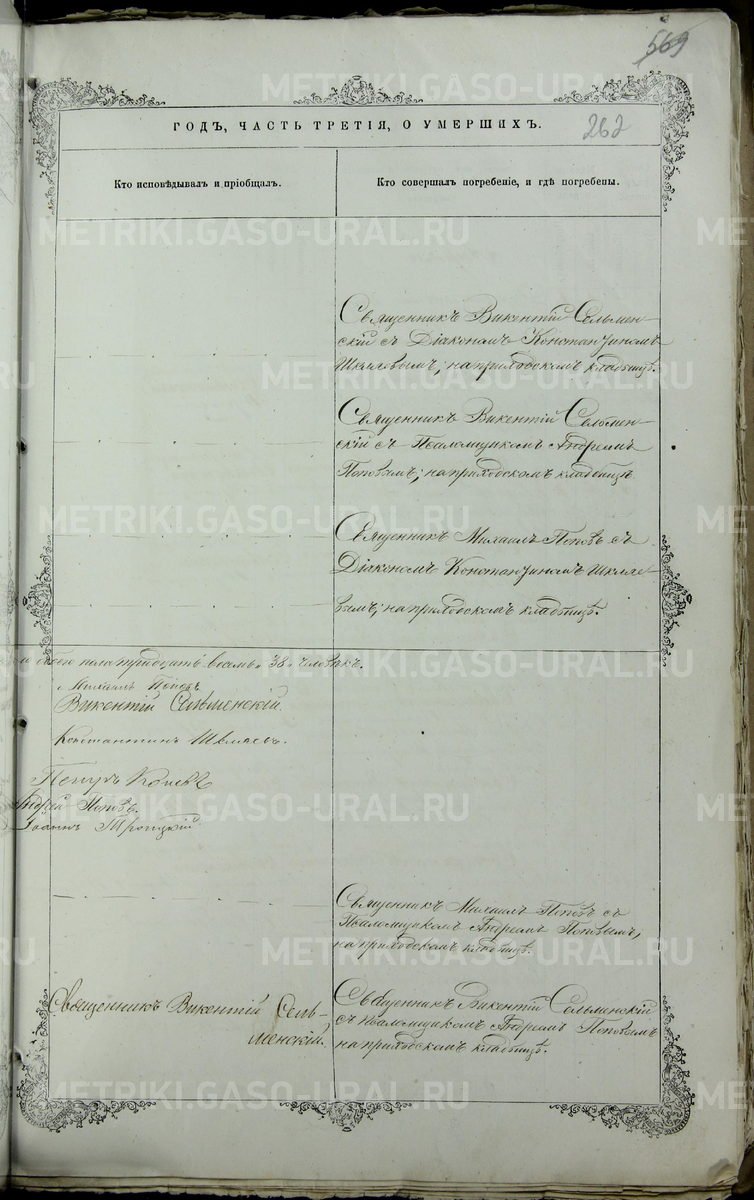 569
ГОДЪ, ЧАСТЬ ТРЕТІЯ, О УМЕРШИХЪ.
262
Кто исповѣдывалъ и пріобщалъ.
Кто совершалъ погребеніе, и гдѣ погребены.
Священникъ Викентій Сельмен-
скій съ Діакономъ Константиномъ
Шкляевымъ; на приходскомъ кладбищѣ.
Священникъ Викентій Сельмен-
скій съ Псаломщикомъ Андреемъ
Поповымъ; на приходскомъ кладбищѣ
Священникъ Михаилъ Поповъ съ
Діакономъ Константиномъ Шкляе-
вымъ; на приходскомъ кладбищѣ.
обоего пола тридцать восемь 38 человѣкъ.
Михаилъ Поповъ
Викентій Сельменскій.
Константинъ Шкляевъ.
Петръ Коневъ
Андрей Поповъ.
Іоаннъ Троицкій.
Священникъ Михаилъ Поповъ съ
Псаломщикомъ Андреемъ Поповымъ,
на приходскомъ кладбищѣ.
Священникъ Викентій Сель-
менскій.
Священникъ Викентій Сельменскій
съ псаломщикомъ Андреемъ Поповымъ
на приходскомъ кладбищѣ.
METRIKI.GASO-URAL.RU